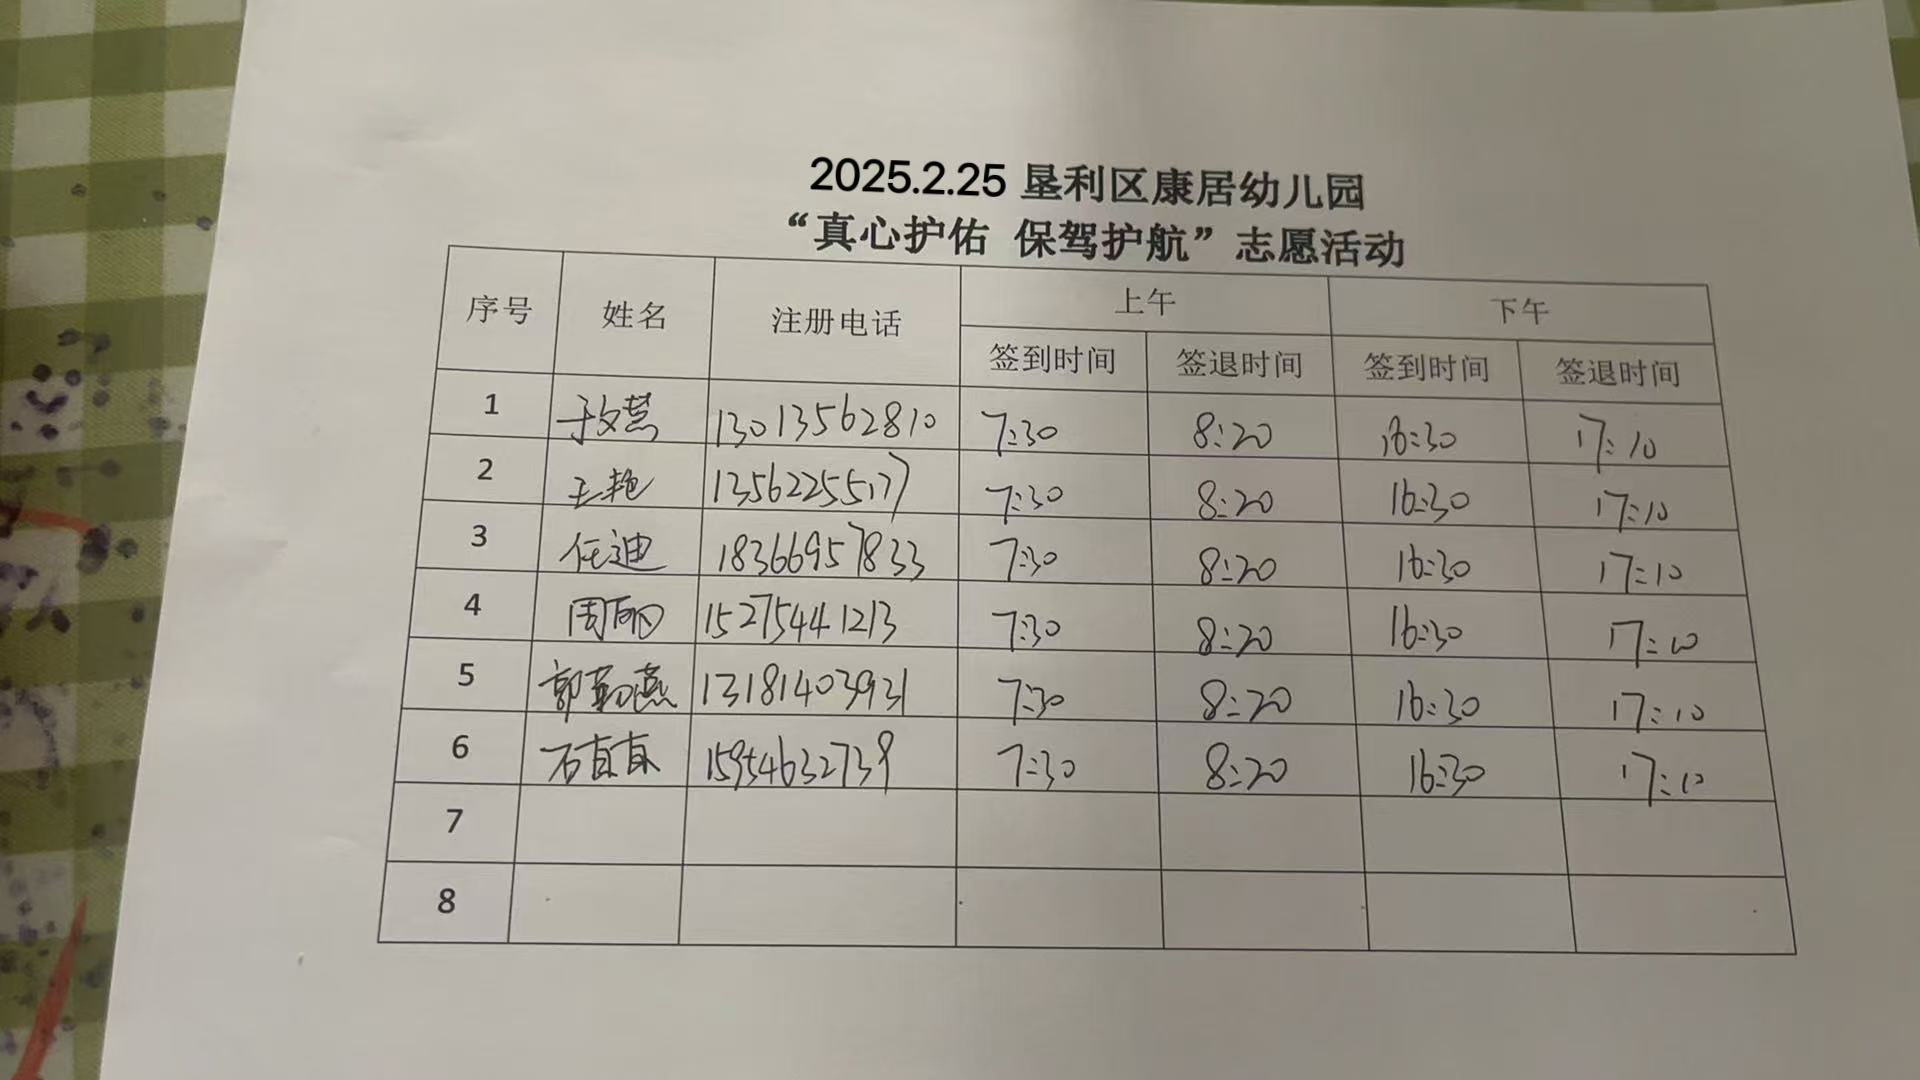 2025.2.25 垦利区康居幼儿园
“真心护佑 保驾护航”志愿活动
序号 姓名 注册电话 上午 下午
签到时间 签退时间 签到时间 签退时间
1 于文慧 13013562810 7:30 8:20 16:30 17:10
2 王艳 13562255177 7:30 8:20 16:30 17:10
3 任迪 18366957833 7:30 8:20 16:30 17:10
4 周丽 15275441213 7:30 8:20 16:30 17:10
5 郭勤燕 13181403931 7:30 8:20 16:30 17:10
6 石真真 15954632739 7:30 8:20 16:30 17:10
7
8